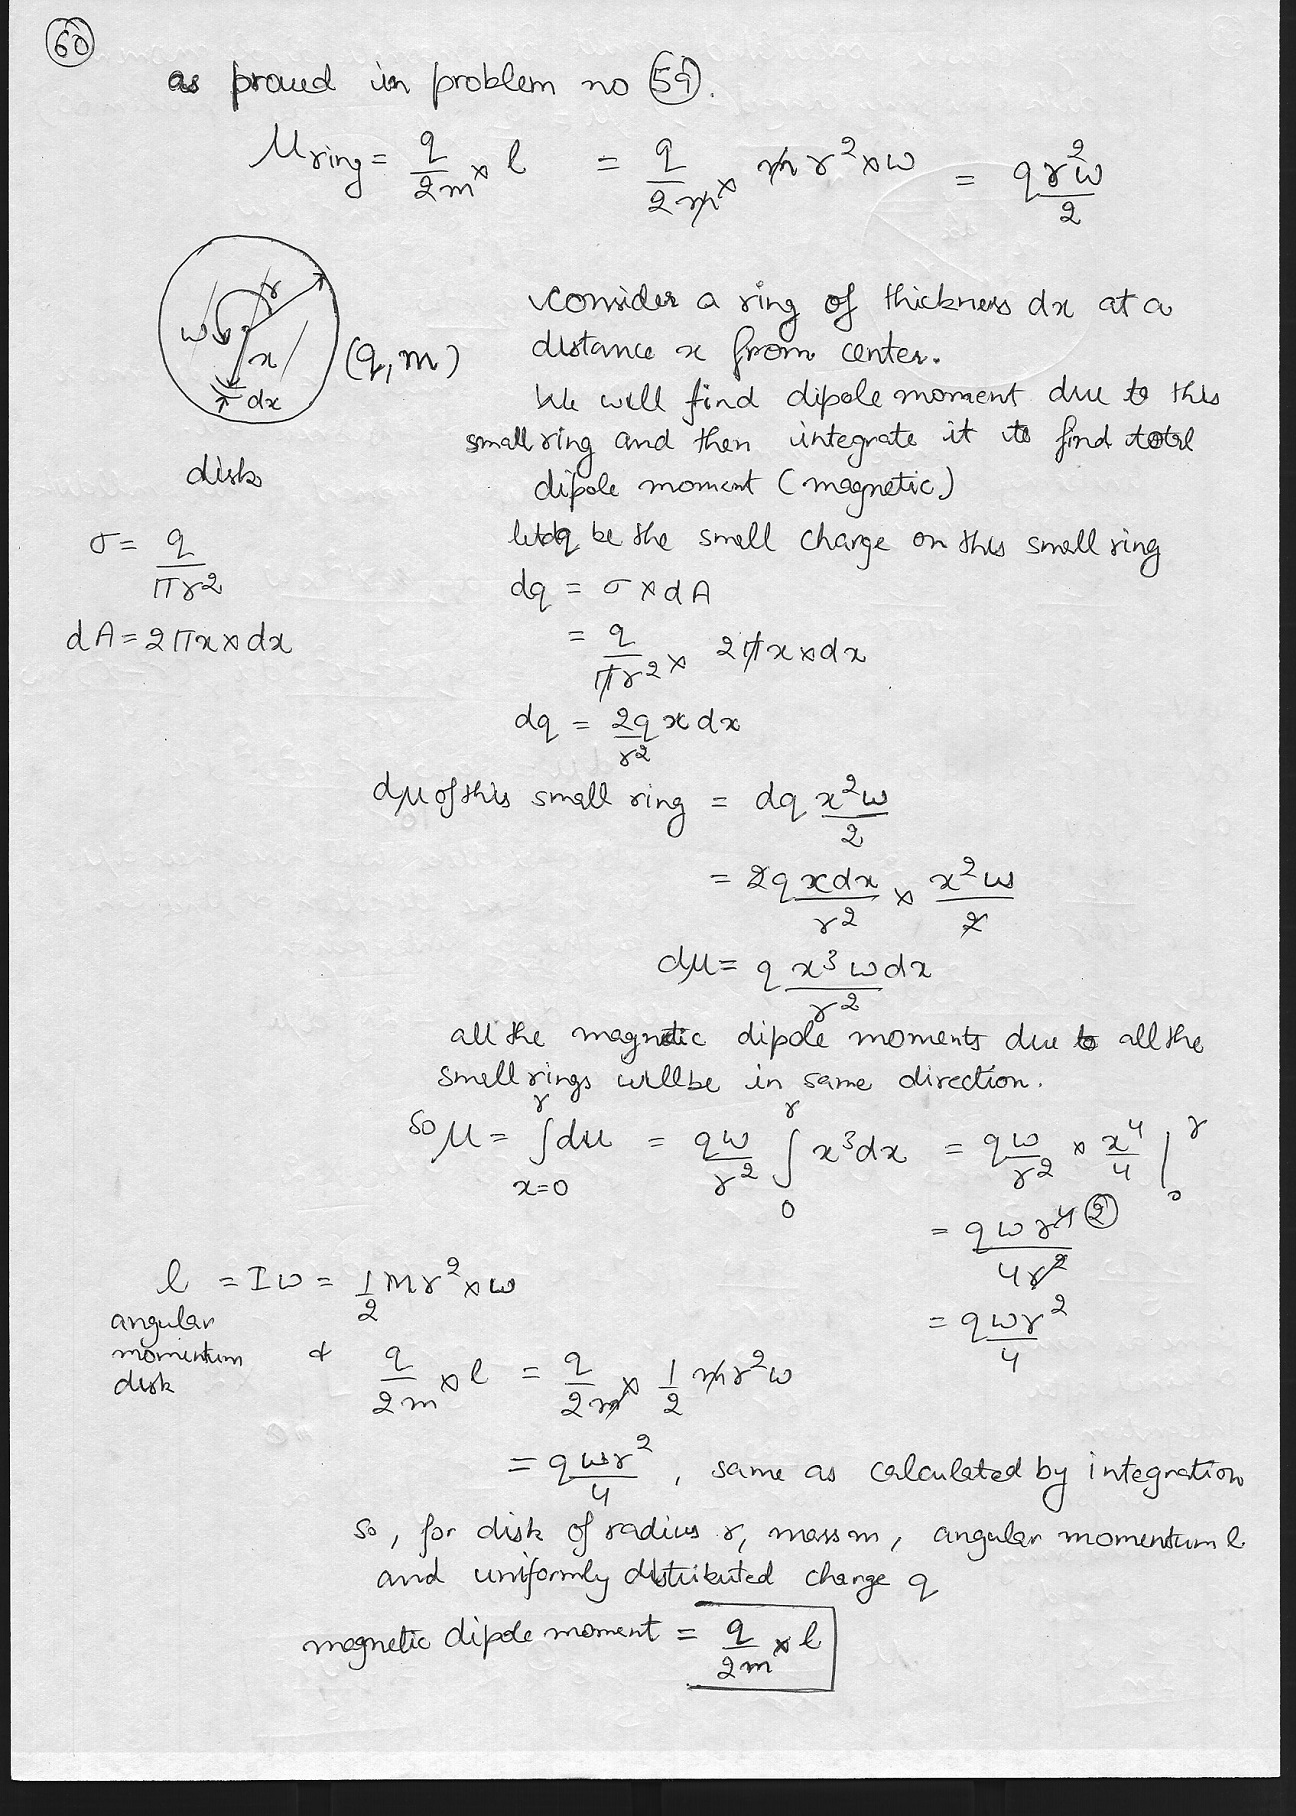 60
as proved in problem no 59.
μring = q/2m × l = q/2m × m r² × ω = q r² ω/2
ω r x dx (q, m)
disk
consider a ring of thickness dx at a
distance x from center.
We will find dipole moment due to this
small ring and then integrate it to find total
dipole moment (magnetic)
σ = q/πr²
dA = 2πx × dx
let dq be the small charge on this small ring
dq = σ × dA
= q/πr² × 2πx × dx
dq = 2q/r² x dx
dμ of this small ring = dq x²ω/2
= 2q x dx/r² × x²ω/2
dμ = q x³ ω dx/r²
all the magnetic dipole moments due to all the
small rings will be in same direction.
so μ = ∫ₓ₌₀ʳ dμ = qω/r² ∫₀ʳ x³dx = qω/r² × x⁴/4 |₀ʳ
= q ω r⁴ ②/4r²
= q ω r²/4
l = Iω = 1/2 m r² × ω
angular
momentum
disk
& q/2m × l = q/2m × 1/2 m r² ω
= q ω r²/4 , same as calculated by integration
so, for disk of radius r, mass m, angular momentum l
and uniformly distributed charge q
magnetic dipole moment = q/2m × l